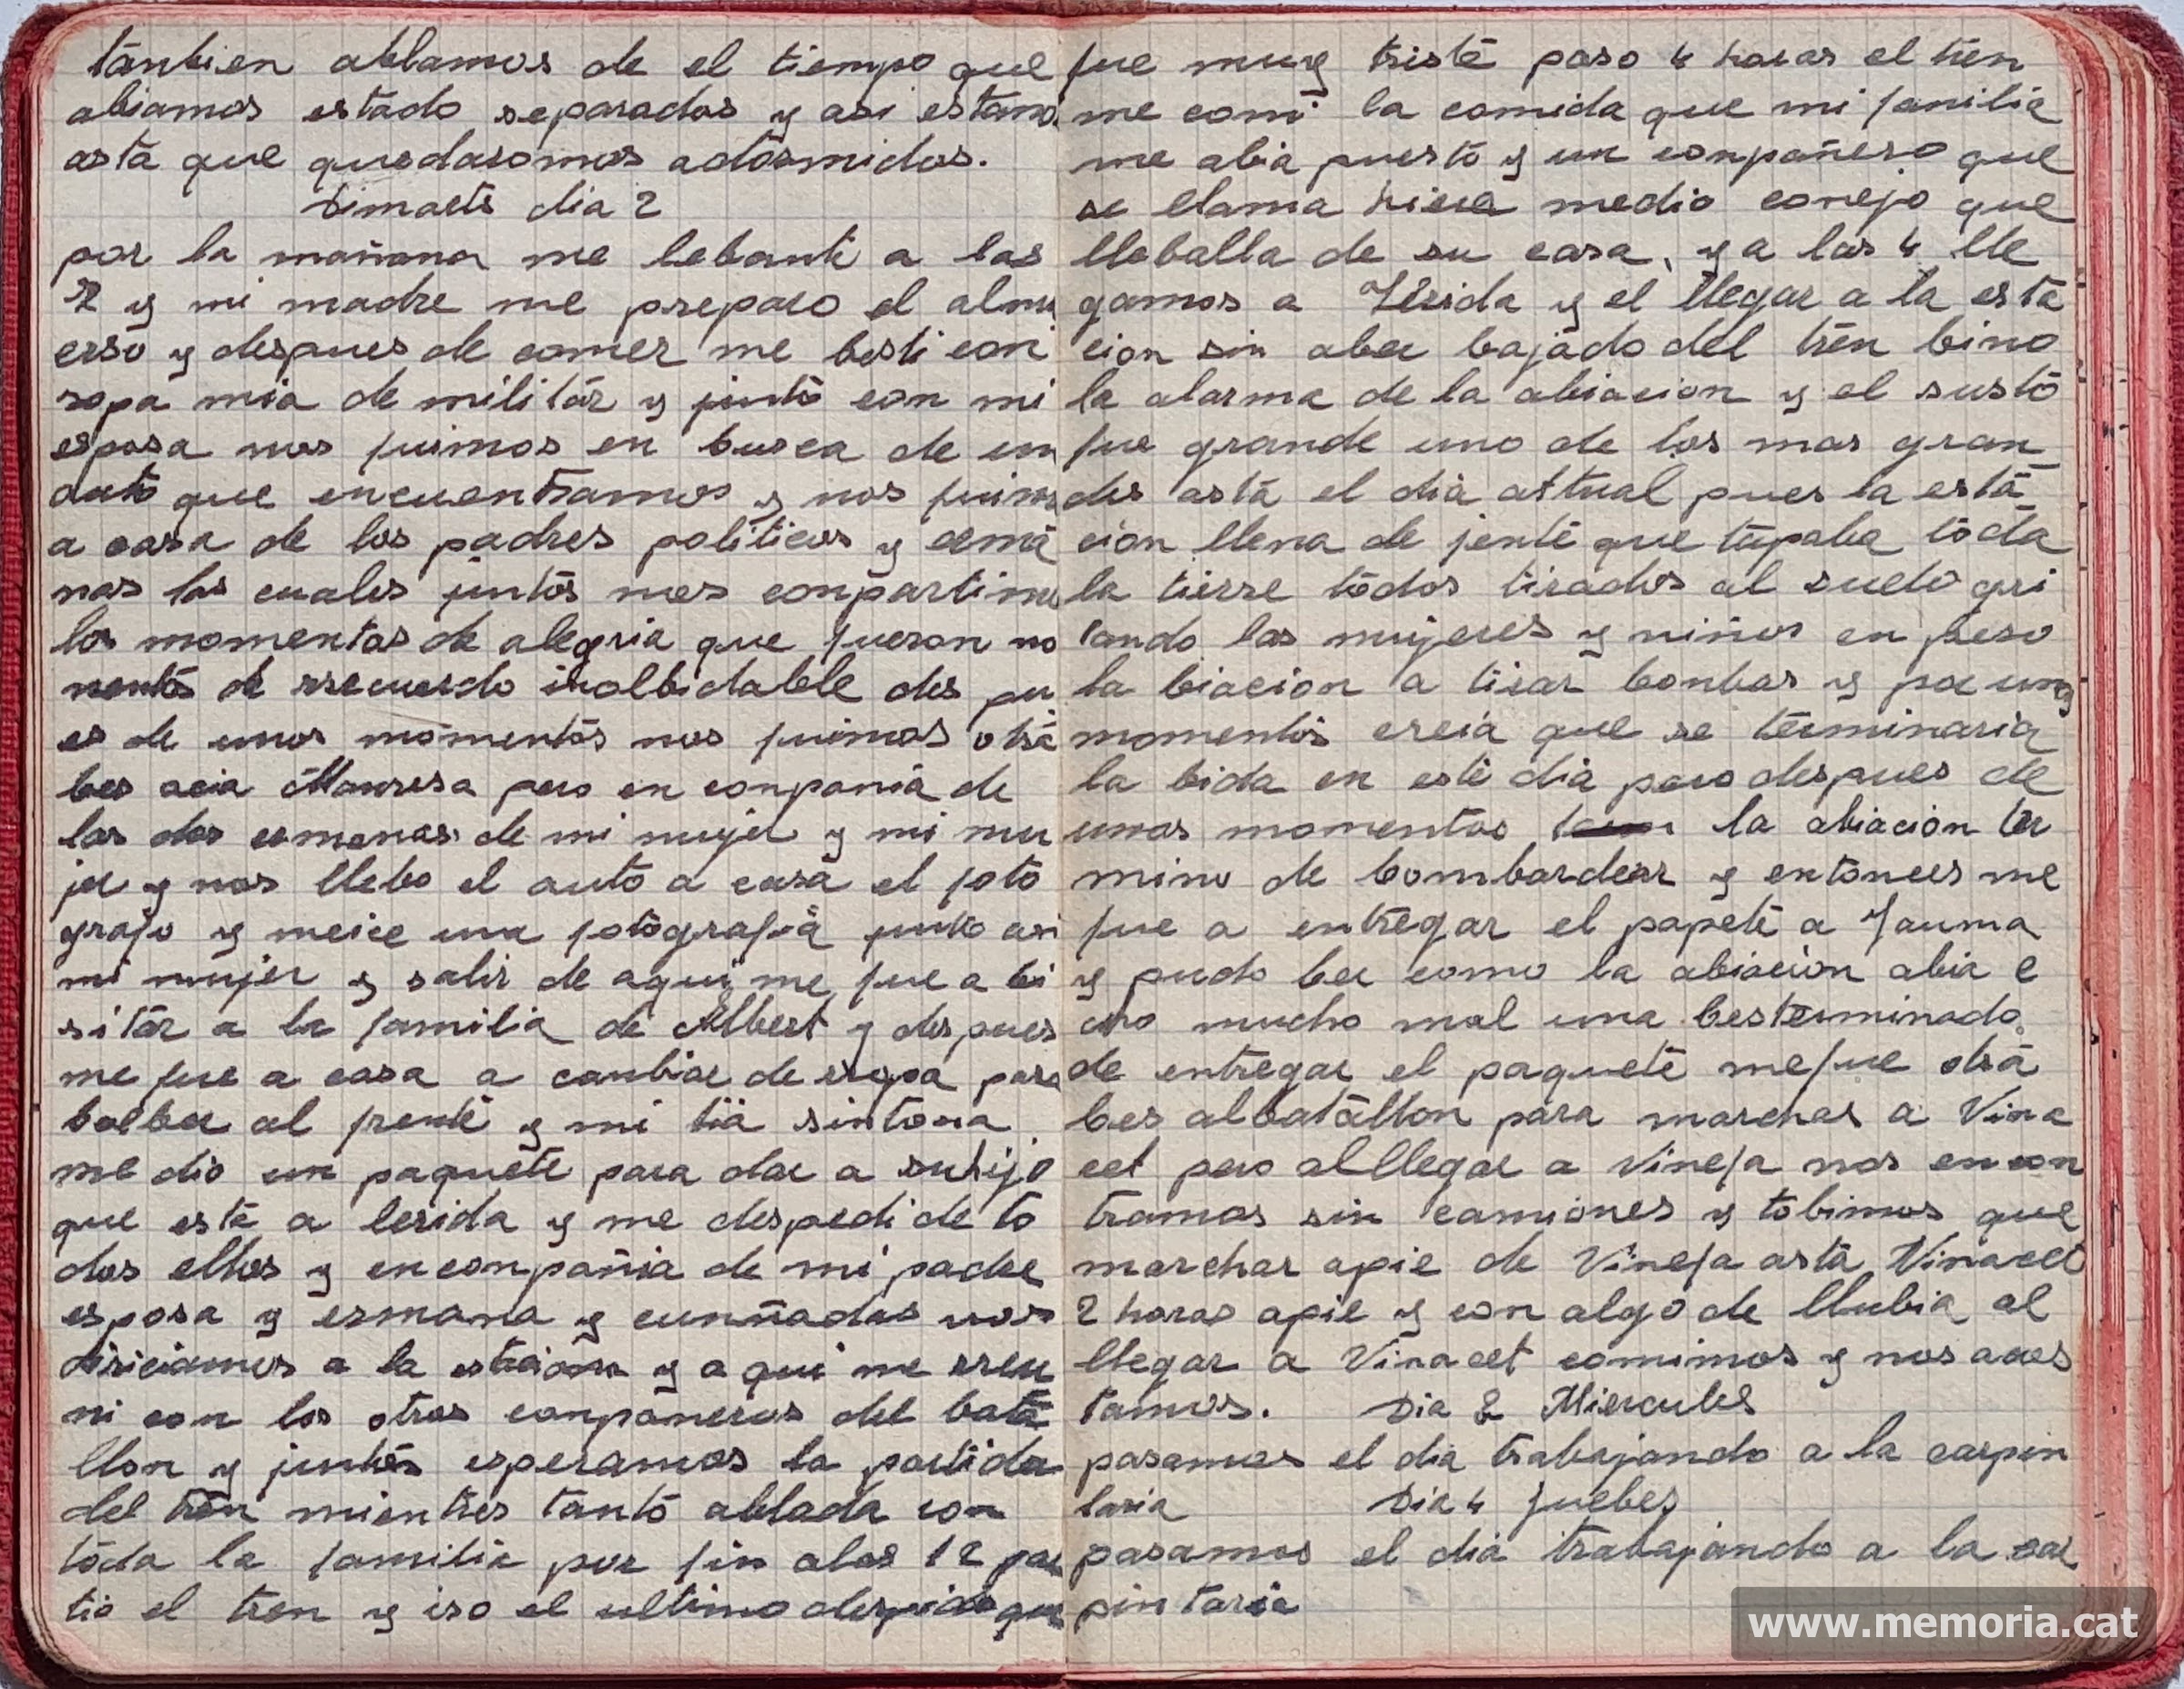 tanbien ablamos de el tiempo que
abiamos estado separados y asi estamos
asta que quedasomos adormidos.
Dimaets dia 2
por la mañana me lebante a las
y mi madre me preparo el almu
erso y despues de comer me besti con
ropa mia de militar y junto con mi
esposa nos fuimos en busca de un
auto que encuentramos y nos fuimos
a casa de los padres politicos y erma
nas las cuales juntos nos conpartimos
los momentos de alegria que fueron mo
mentos de rrecuerdo inolbidable des pu
es de unos momentos nos fuimos otra
bes acia Manresa pero en conpania de
las dos ermanas de mi mujer y mi mu
jer y nos llebo el auto a casa el foto
grafo y meice una fotografia junto asi
mi mujer y salir de aqui me fue a bi
sitar a la familia de Albert y despues
me fue a casa a canbiar de ropa para
bolber al frente y mi tia sintona
me dio un paquete para dar a suhijo
que esta a lerida y me despedi de to
dos ellos y enconpañia de mi padre
esposa y ermana y cuñados nos
diriciamos a la estacion y a qui me rreu
ni con los otros conpaneros del bata
llon y juntos esperamos la partida
del tren mientres tanto ablada con
toda la familia por fin alas 12 par
tio el tren y iso el ultimo despido que
fue muy triste paso 4 horas el tren
me comi la comida que mi familia
me abia puesto y un conpañero que
se llama medio conejo que
lleballa de su casa, y a las 4 lle
gamos a Lerida y el llegar a la esta
cion sin aber bajado del tren bino
la alarma de la abiacion y el susto
fue grande uno de los mas gran
des asta el dia attual pues la esta
cion llena de jente que tapaba toda
la tierre todos tirados al suelo gri
tando las mujeres y niños en peso
la biacion a tirar bonbas y por unos
momentos creia que se terminaria
la bida en este dia pero despues de
unos momentos la abiacion ter
mino de bombardear y entonces me
fue a entregar el papete a Jauma
y pudo ber como la abiacion abia e
cho mucho mal una besterminado
de entregar el paquete mefue otra
bes albatallon para marchar a Vina
cet pero alllegar a Vinefa nos encon
tramos sin camiones y tobimos que
marchar apie de Vinefa asta Vinacet
2 horas apie y con algo de llubia al
llegar a Vinacet comimos y nos acos
tamos. Dia Miercules
pasamos el dia trabajando a la carpin
taria Dia 4 juebes
pasamos el dia trabajando a la car
pintaria
www.memoria.cat